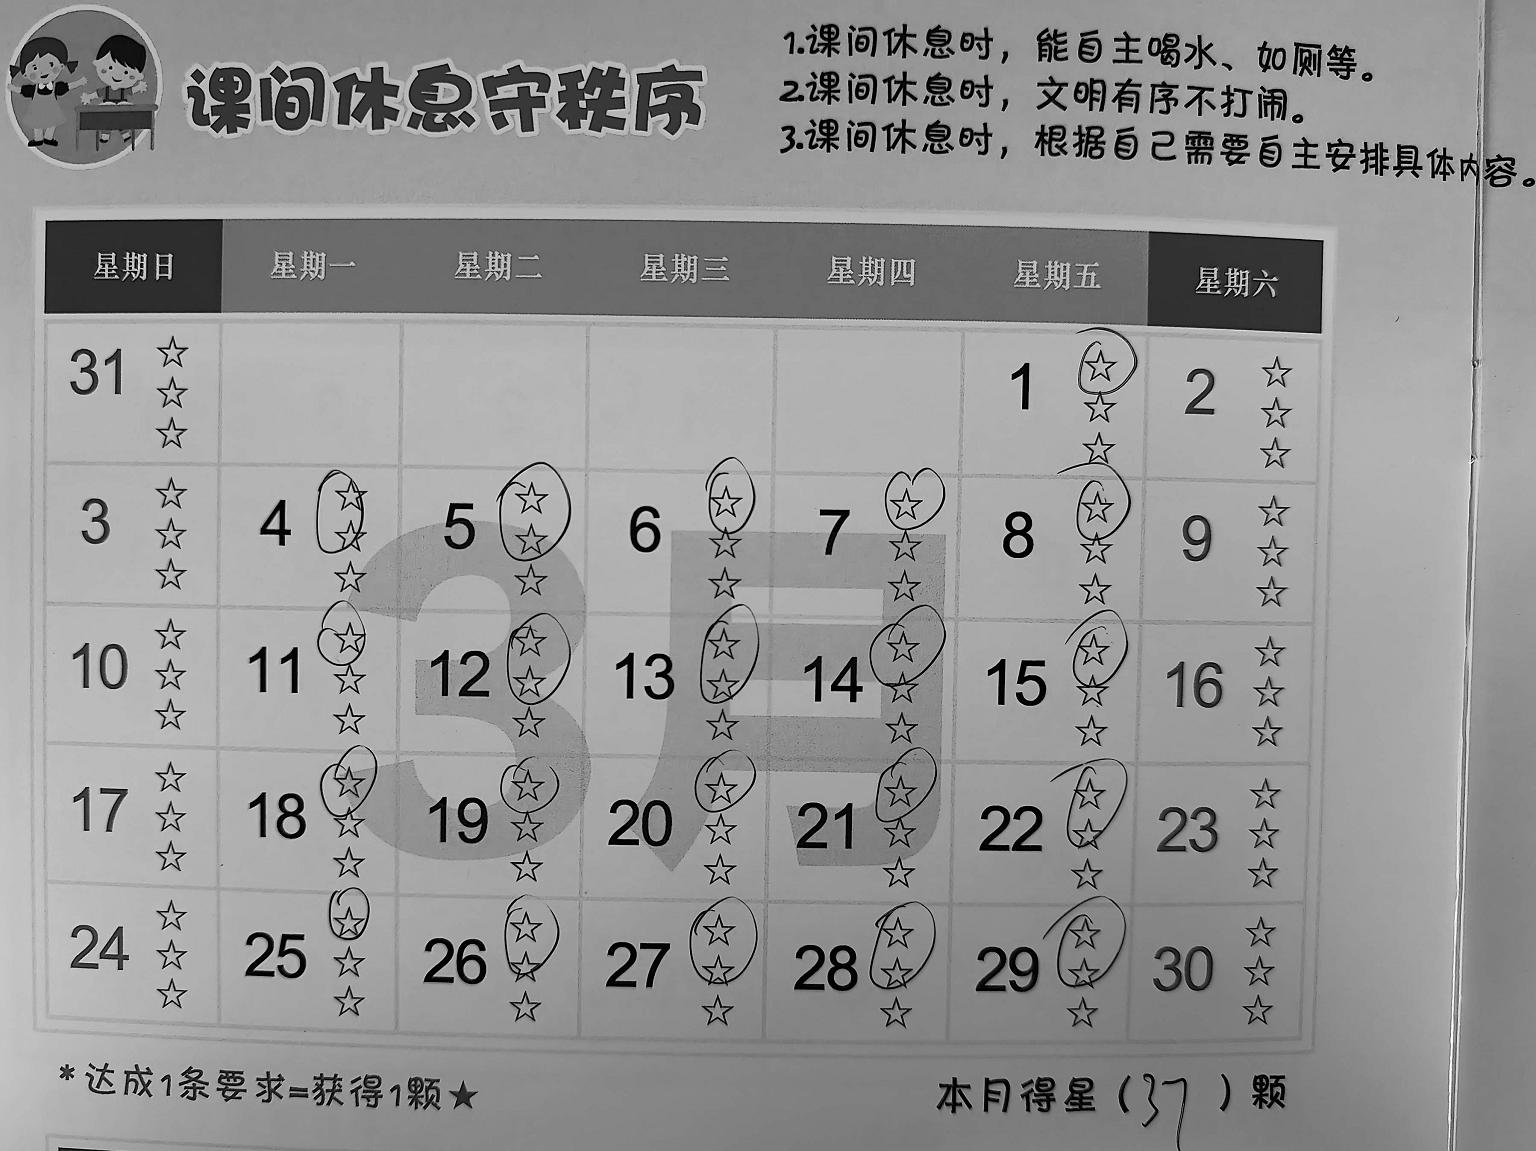 课间休息守秩序
1.课间休息时，能自主喝水、如厕等。
2.课间休息时，文明有序不打闹。
3.课间休息时，根据自己需要自主安排具体内容。
星期日 星期一 星期二 星期三 星期四 星期五 星期六
31 ☆☆☆ 1 ☆☆☆ 2 ☆☆☆
3 ☆☆☆ 4 ☆☆☆ 5 ☆☆☆ 6 ☆☆☆ 7 ☆☆☆ 8 ☆☆☆ 9 ☆☆☆
10 ☆☆☆ 11 ☆☆☆ 12 ☆☆☆ 13 ☆☆☆ 14 ☆☆☆ 15 ☆☆☆ 16 ☆☆☆
17 ☆☆☆ 18 ☆☆☆ 19 ☆☆☆ 20 ☆☆☆ 21 ☆☆☆ 22 ☆☆☆ 23 ☆☆☆
24 ☆☆☆ 25 ☆☆☆ 26 ☆☆☆ 27 ☆☆☆ 28 ☆☆☆ 29 ☆☆☆ 30 ☆☆☆
3月
*达成1条要求=获得1颗★
本月得星（37）颗